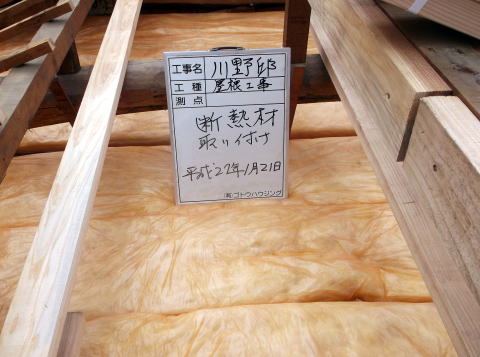 工事名 川野邸
工種 屋根工事
測点
断熱材
取り付け
平成22年1月21日
(有)ゴトウハウジング